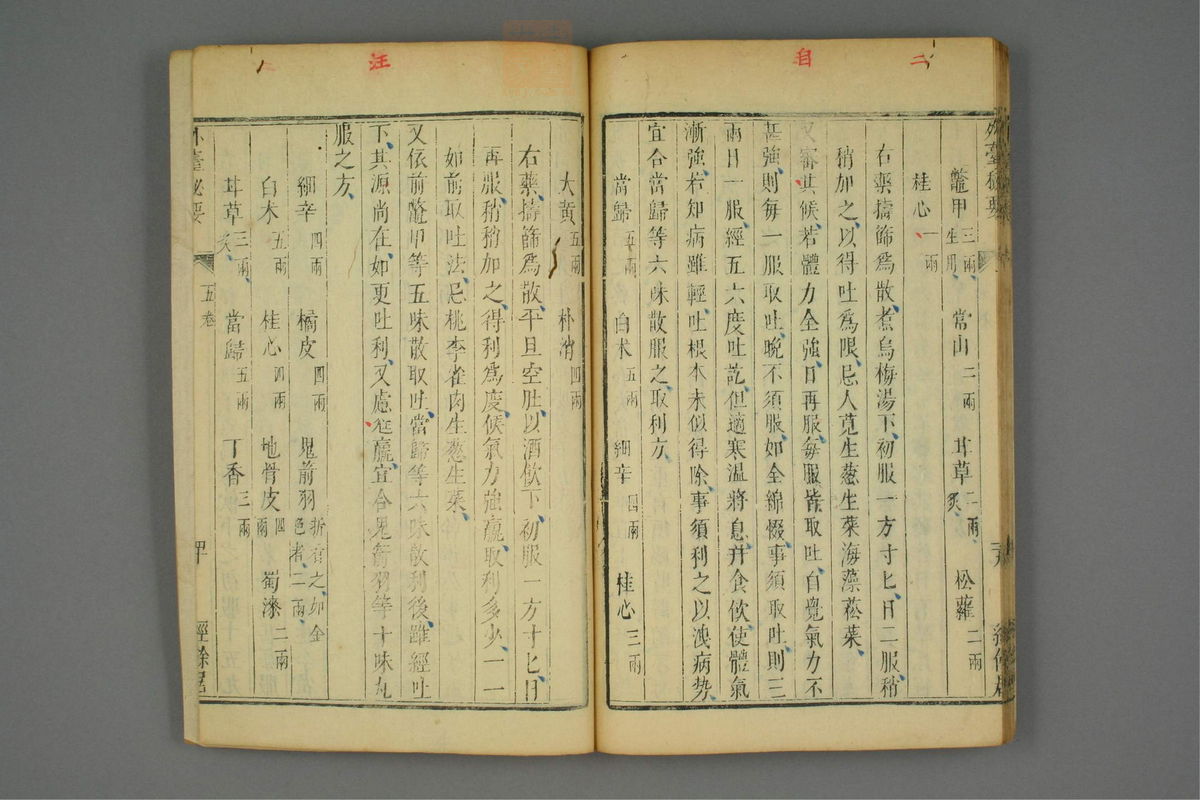 二
自
外臺秘要
鼈甲三兩生用 常山二兩 甘草二兩炙 松蘿二兩
桂心一兩
右藥擣篩爲散煮烏梅湯下初服一方寸匕日二服稍
稍加之以得吐爲限忌人莧生葱生菜海藻菘菜
又審其候若體力全強日再服每服皆取吐自覺氣力不
甚強則每一服取吐晚不須服如全綿惙事須取吐則三
兩日一服經五六度吐訖但適寒溫將息并食飲使體氣
漸強若知病雖輕吐根本未似得除事須利之以洩病勢
宜合當歸等六味散服之取利方
當歸五兩 白朮五兩 細辛四兩 桂心三兩
汪
大黃五兩 朴消四兩
右藥擣篩爲散平旦空肚以酒飲下初服一方寸匕日
再服稍稍加之得利爲度候氣力強羸取利多少一一
如前取吐法忌桃李雀肉生葱生菜
又依前鼈甲等五味散取吐當歸等六味散利後雖經吐
下其源尚在如更吐利又慮尫羸宜合鬼箭羽等十味丸
服之方
細辛四兩 橘皮四兩 鬼箭羽折看之如金色者二兩
白朮五兩 桂心四兩 地骨皮四兩 蜀漆二兩
甘草三兩炙 當歸五兩 丁香三兩
外臺祕要 五卷 經餘居